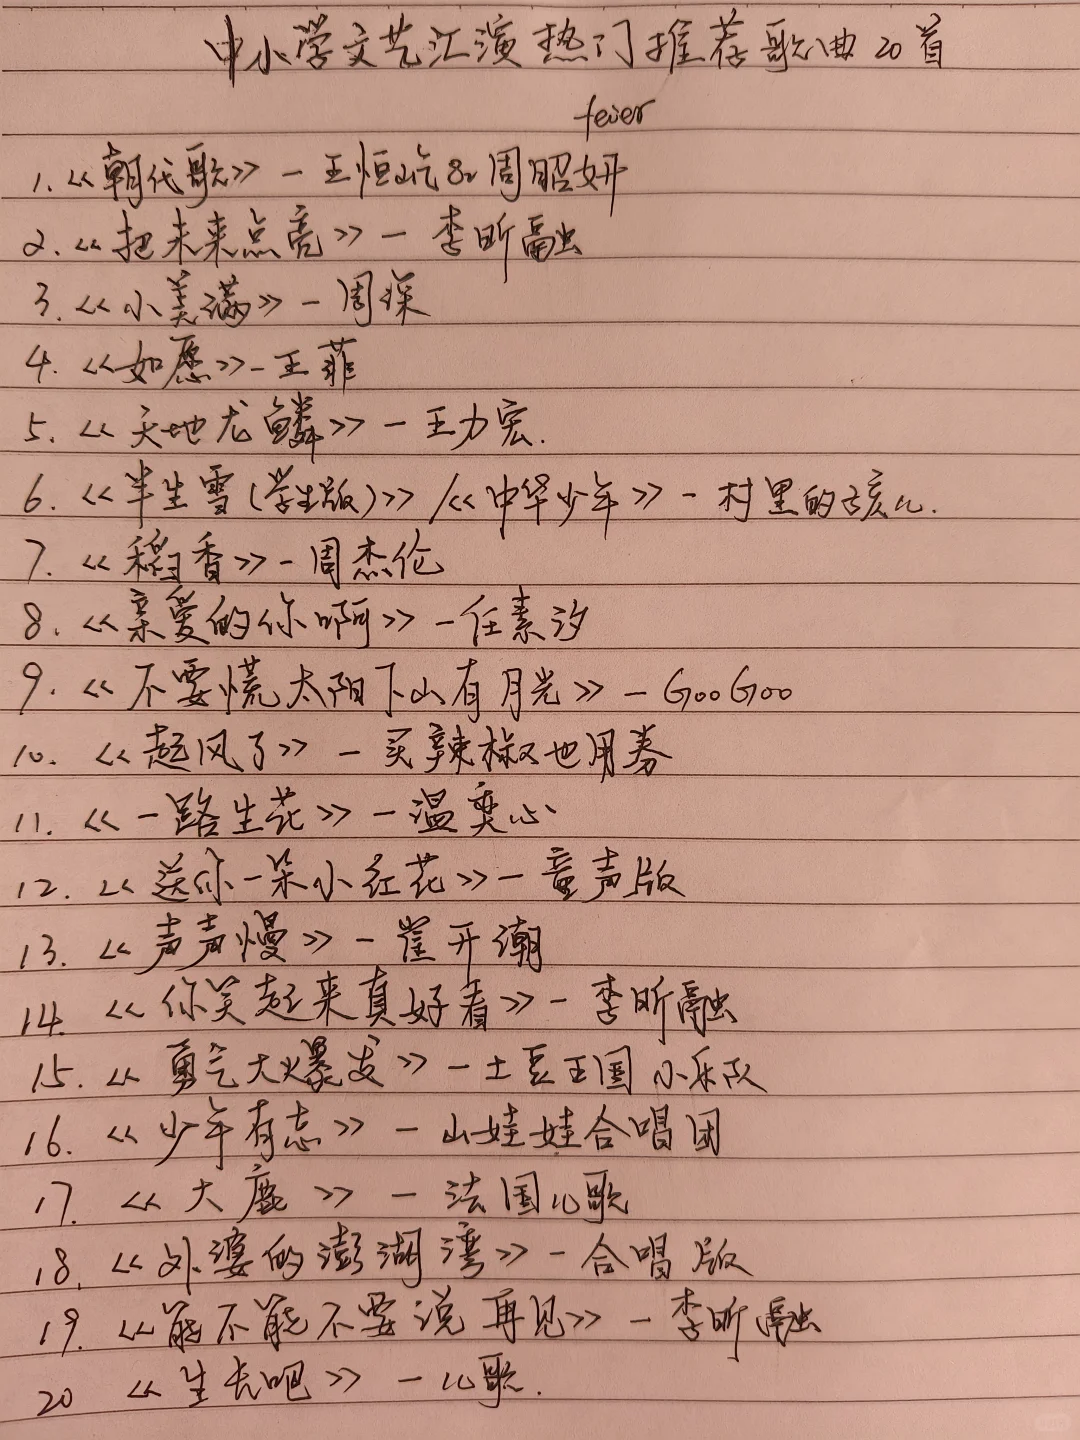 中小学文艺汇演热门推荐歌曲20首
fever
1.《朝代歌》-王恒屹&周昭妍
2.《把未来点亮》-李昕融
3.《小美满》-周深
4.《如愿》-王菲
5.《天地龙鳞》-王力宏.
6.《半生雪(学生版)》/《中华少年》-村里的孩儿.
7.《稻香》-周杰伦
8.《亲爱的你啊》-任素汐
9.《不要慌太阳下山有月光》-GooGoo
10.《起风了》-买辣椒也用券
11.《一路生花》-温奕心
12.《送你一朵小红花》-童声版
13.《声声慢》-崔开潮
14.《你笑起来真好看》-李昕融
15.《勇气大爆发》-土豆王国小乐队
16.《少年有志》-山娃娃合唱团
17.《大鹿》-法国儿歌
18.《外婆的澎湖湾》-合唱版
19.《能不能不要说再见》-李昕融
20《生长吧》-儿歌.